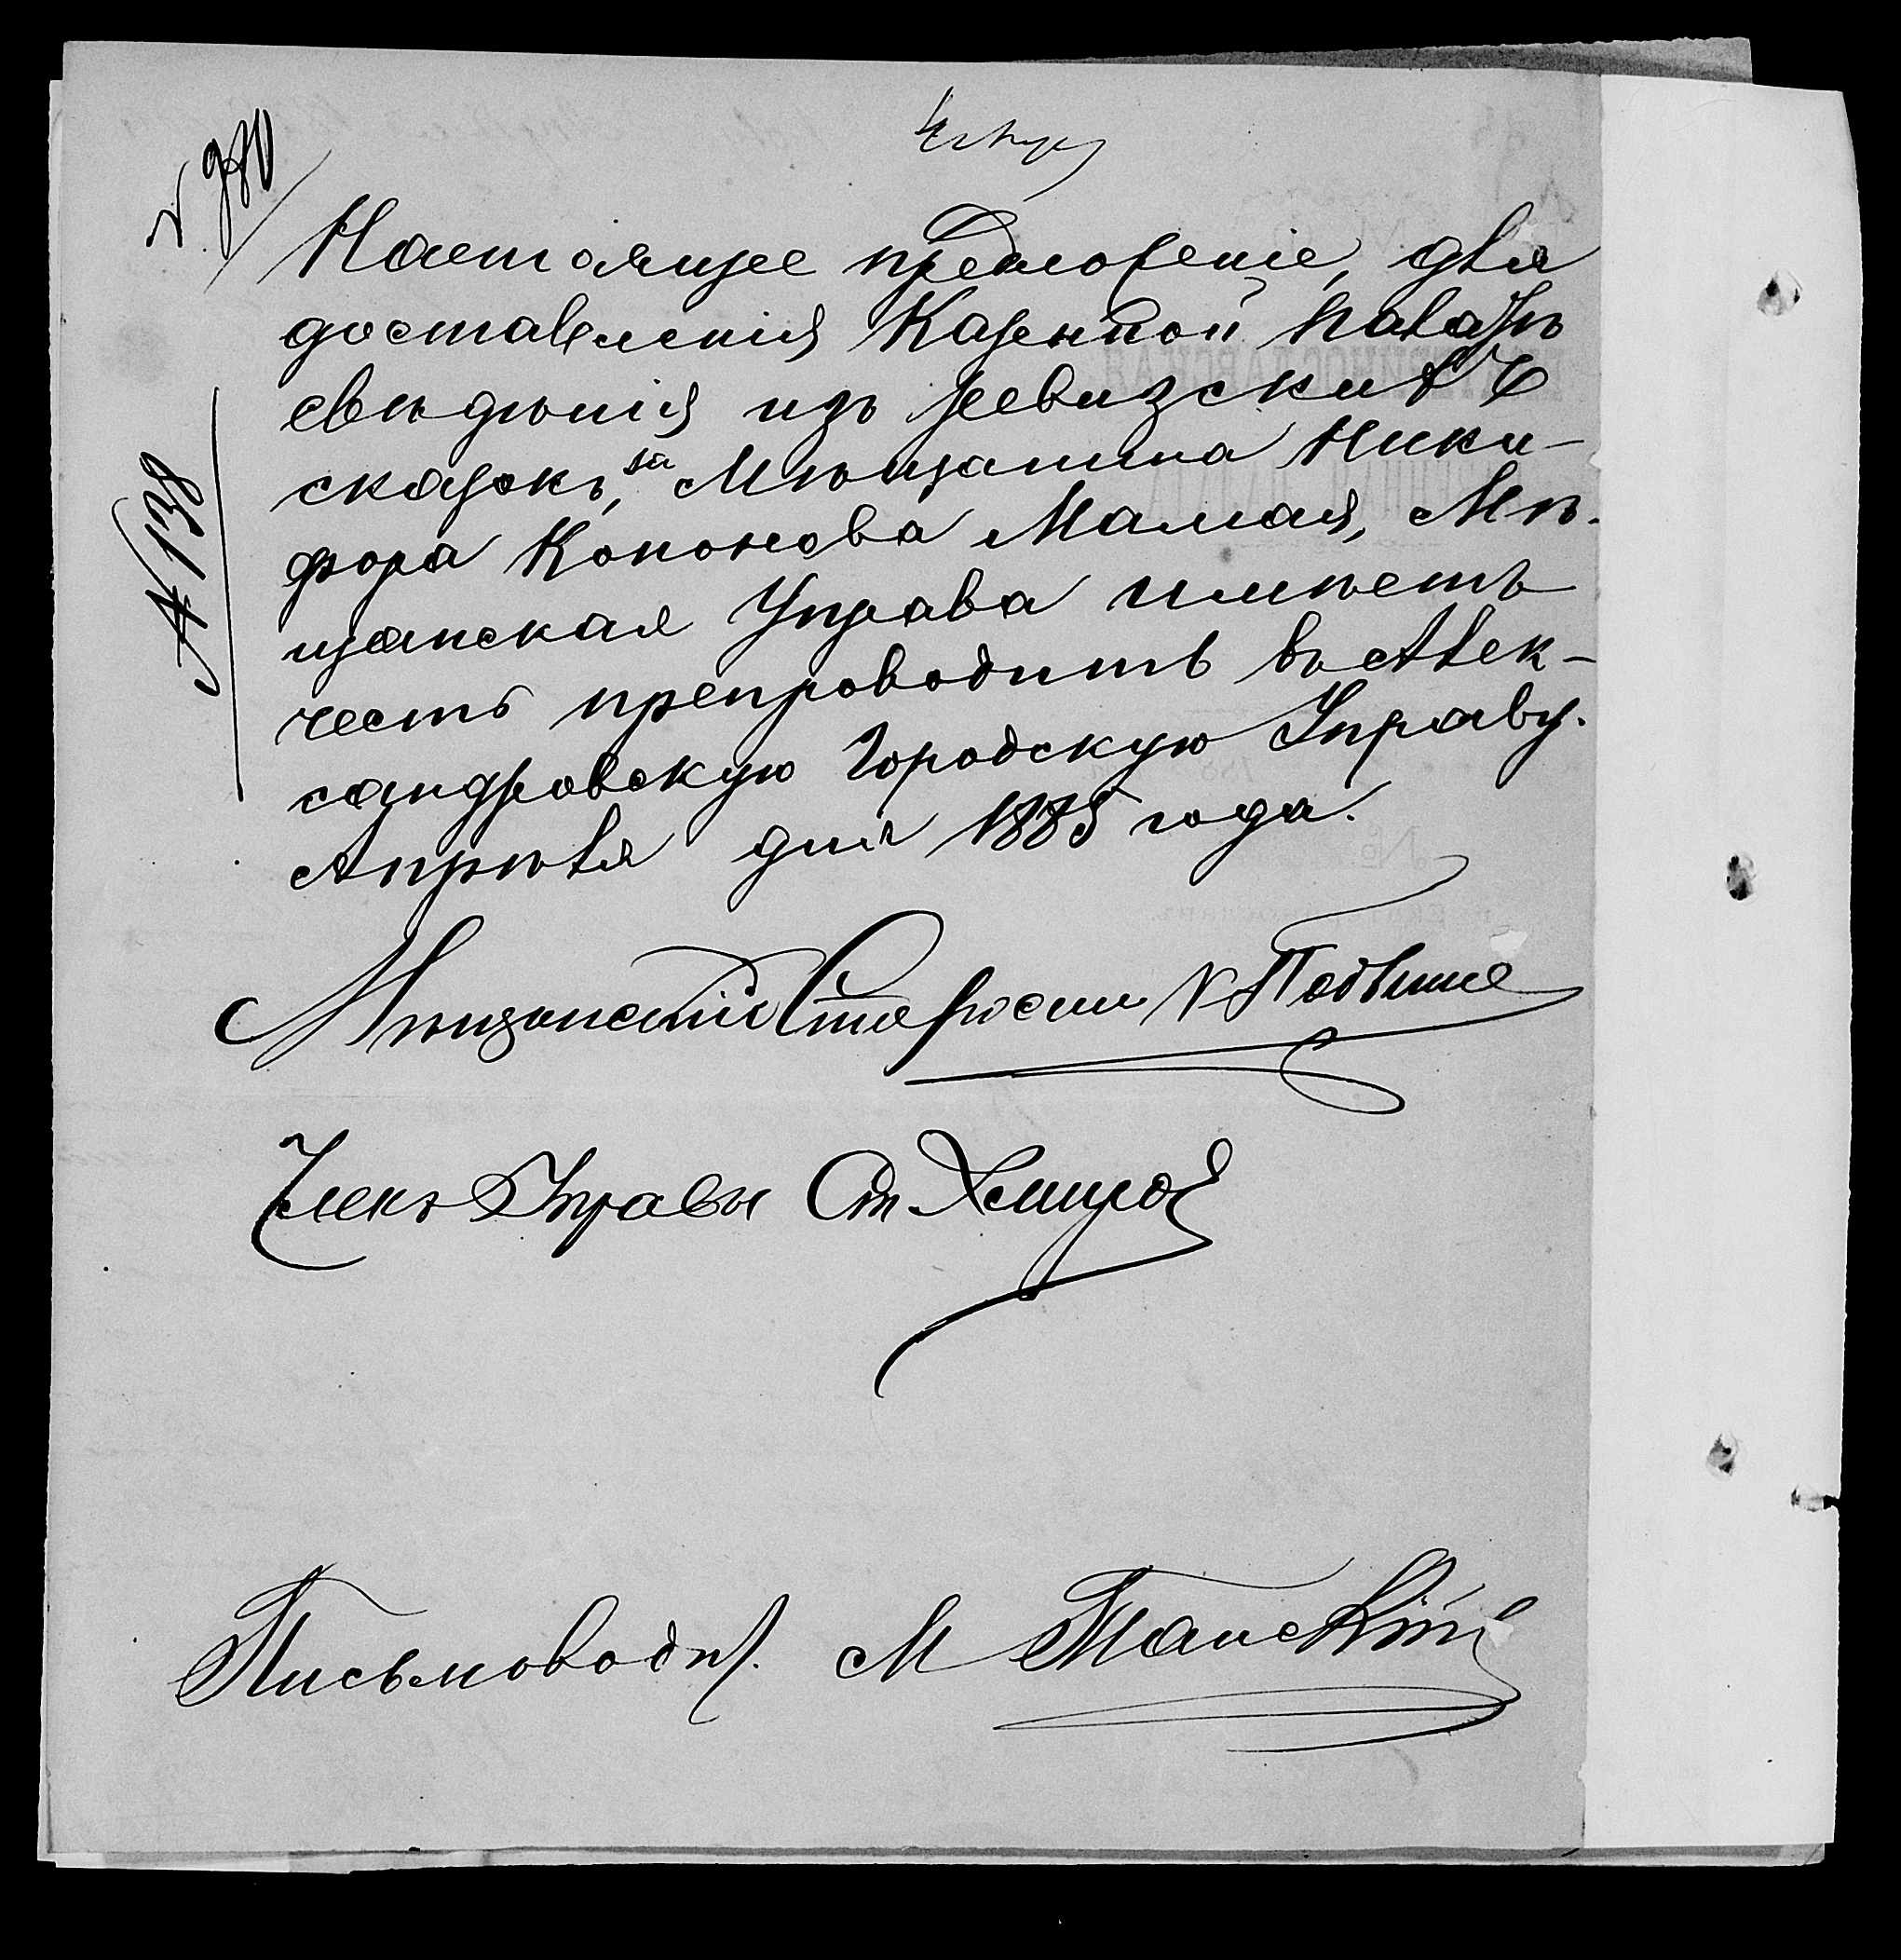 № 980
Настоящее предложеніе, для
доставленія Казенной палатѣ
свѣдѣнія изъ ревизскихъ
сказокъ, за Мѣщанина Ники-
фора Кононова Мамая, Мѣ-
щанская Управа имѣетъ
честь препроводить въ Алек-
сандровскую Городскую Управу.
Апрѣля дня 1885 года.
№ 138
Мѣщанскій Староста
Членъ Управы Ст.
Письмоводит. М